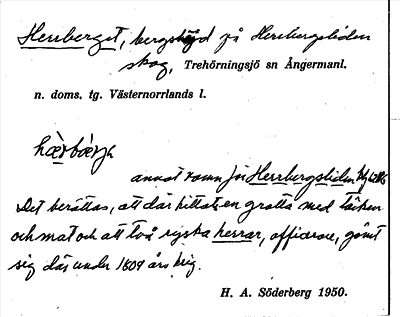 Herrberget, bergshöjd på Herrbergsliden
skog, Trehörningsjö sn Ångermanl.
n. doms. tg. Västernorrlands l.
hær̀bær̀ja
annat namn för Herrbergsliden
Det berättas, att där hittats en grotta med täcken
och mat och att två ryska herrar, officerare, gömt
sig där under 1809 års krig.
H. A. Söderberg 1950.